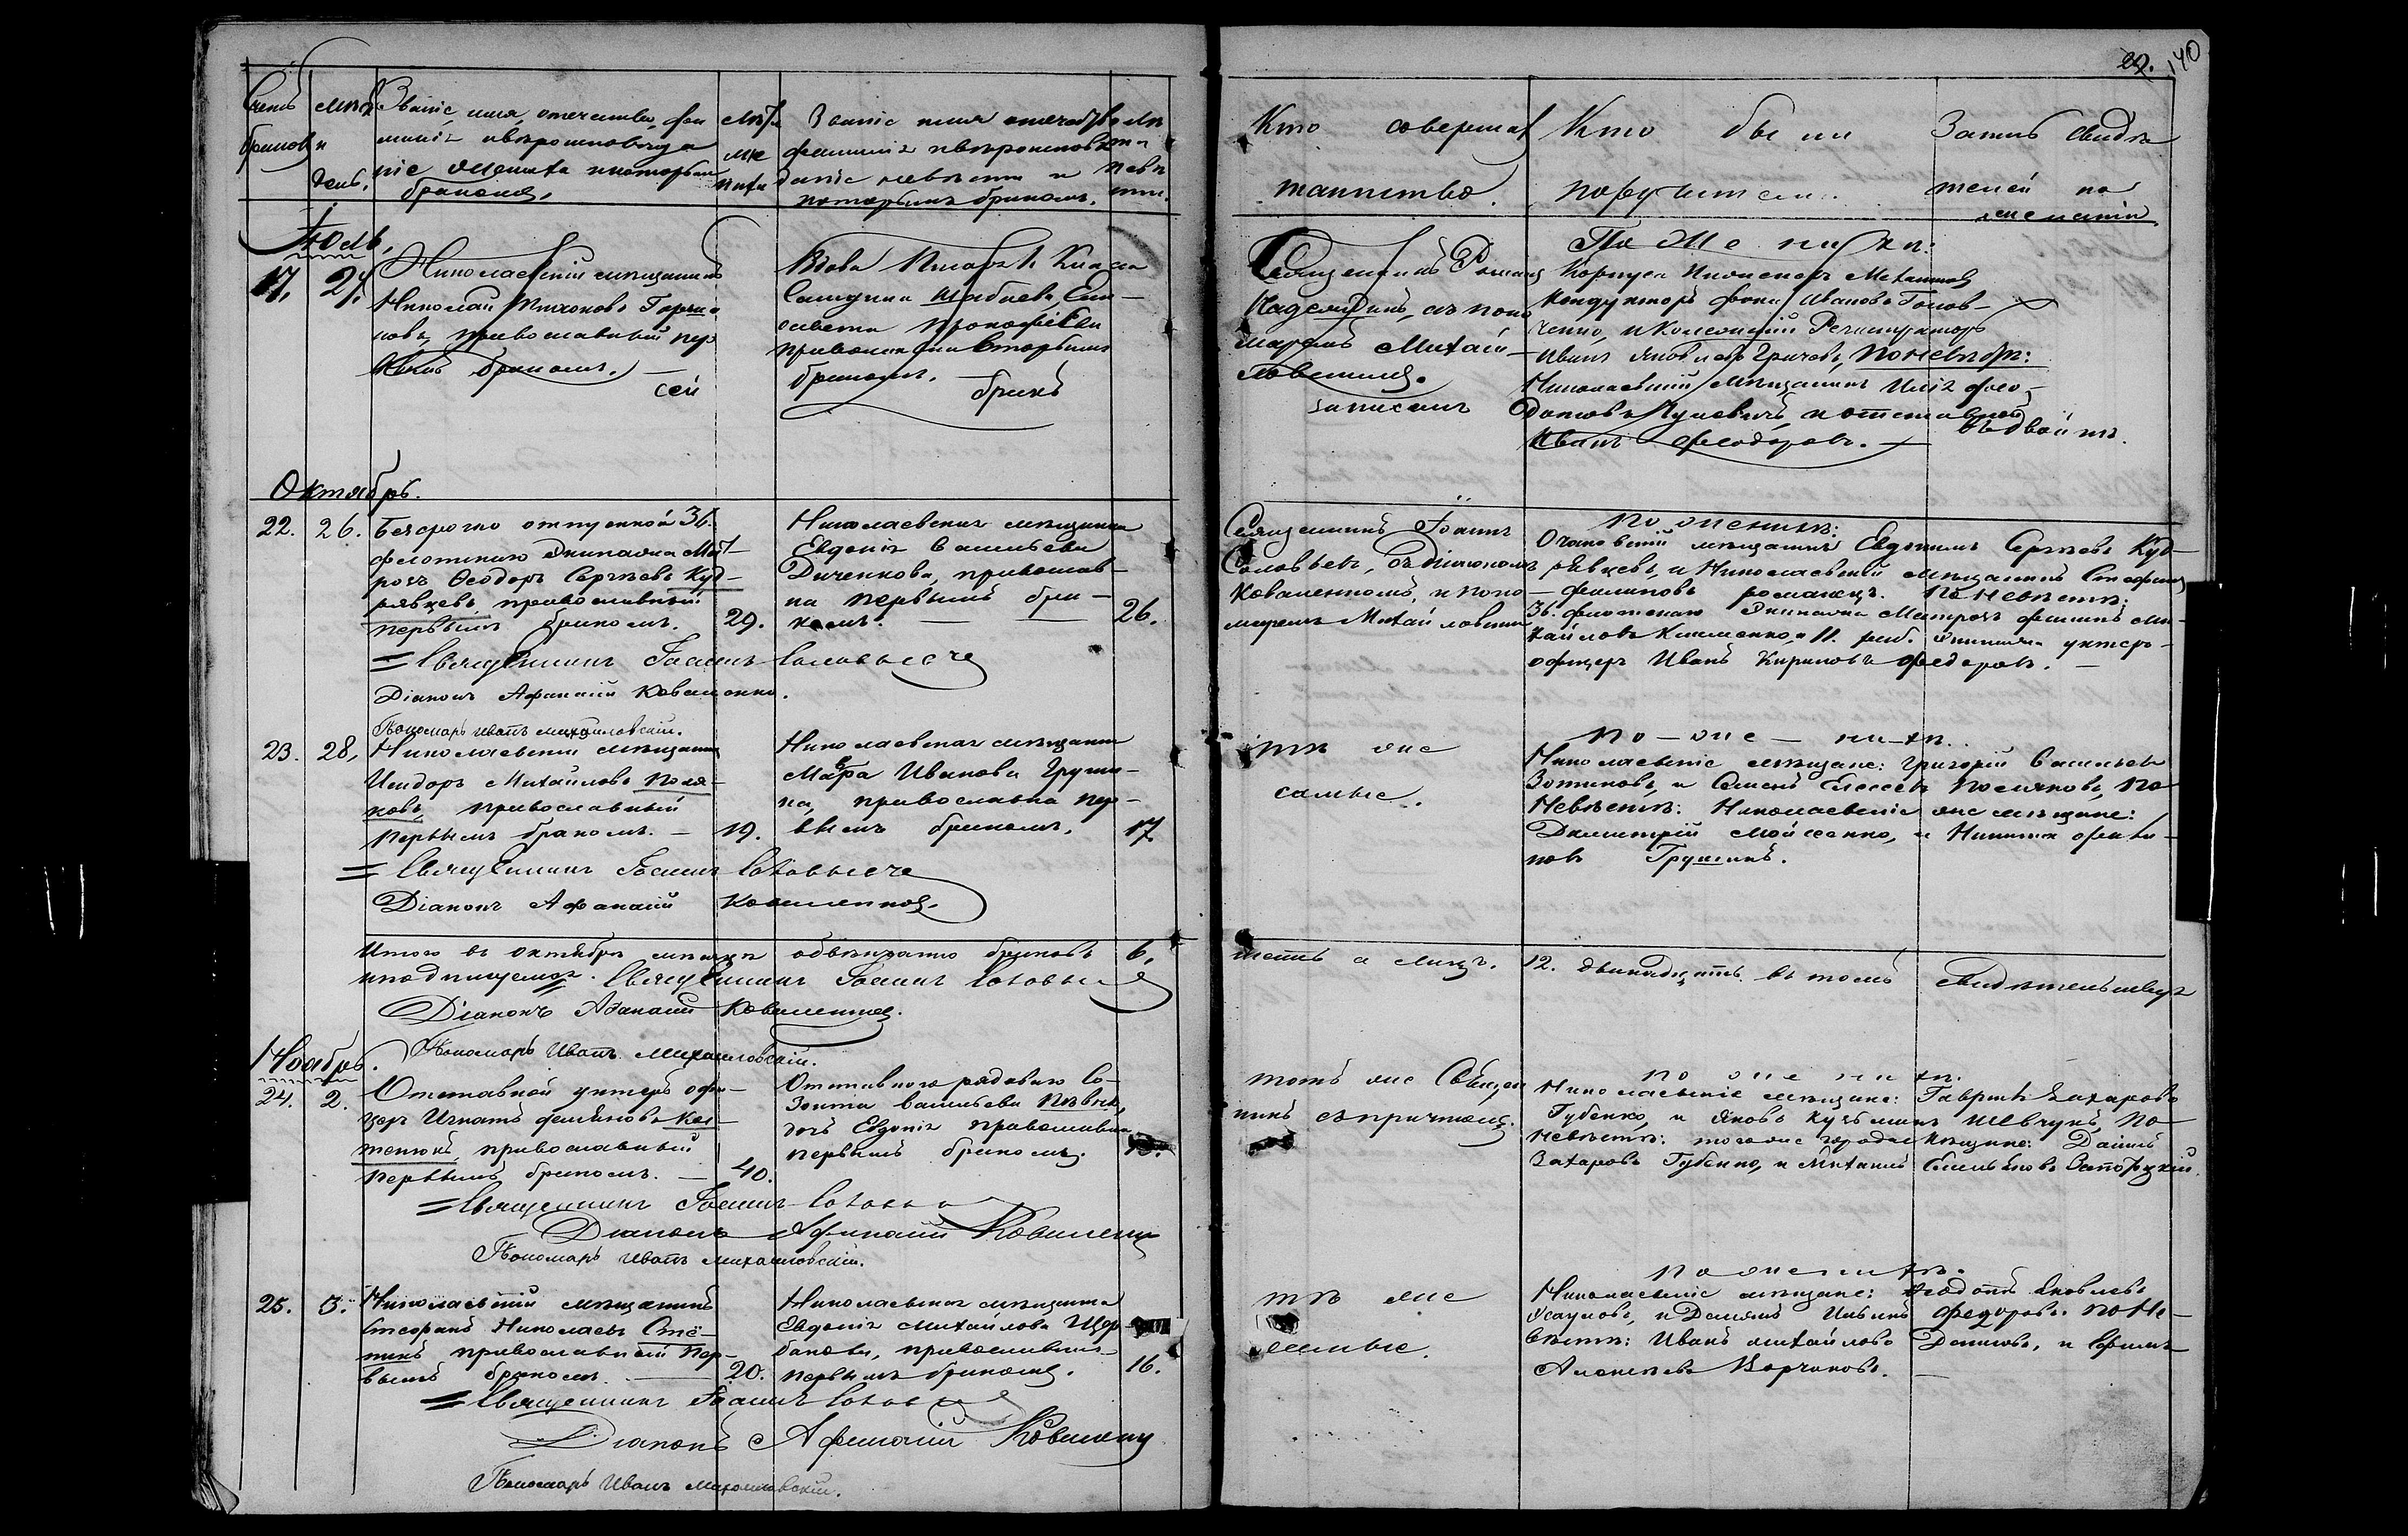 29. 140
Счетъ браковъ
Мѣсяцъ и день.
Званіе, имя, отечество, фамилія и вѣроисповѣданіе жениха и которымъ бракомъ.
Лѣта жениха
Званіе имя отечество фамилія и вѣроисповѣданіе невѣсты и которымъ бракомъ.
Лѣта невѣсты.
Кто совершалъ таинство.
Кто были поручители.
Запись свидѣтелей по желанію
Іюль.
17. 24.
Николаевскій мѣщанинъ
Николай Тихоновъ
новъ, православный пер
вымъ бракомъ.
сей
Вдова
Елисавета Прокофіева
православная вторымъ
бракомъ.
бракъ
Священникъ Романъ
съ поно
маремъ Михай-
ловскимъ.
записанъ
По женихѣ:
Корпуса Инженеръ Механиковъ
Кондукторъ Фока Ивановъ Голов-
ченко, и Коллежскій Регистраторъ
Иванъ Яковлевъ Грачевъ, по невѣстѣ:
Николаевскій мѣщанинъ Илія Фео-
и отставной
Иванъ Феодоровъ.
вдвойнѣ.
Октябрь.
22. 26. Безсрочно отпускной 36.
флотскаго Экипажа Мат-
росъ Ѳеодоръ Сергѣевъ Куд-
рявцевъ, православный
первымъ бракомъ. 29.
Николаевская мѣщанка
Евдокія Васильева
Диченкова, православ-
на первымъ бра-
комъ. 26.
= Священникъ Іоаннъ Соловьевъ
Діаконъ Афанасій Коваленко.
Пономарь Иванъ Михайловскій.
Священникъ Іоаннъ
Соловьевъ, съ діакономъ
Коваленкомъ, и поно-
маремъ Михайловскимъ
По женихѣ:
Очаковскій мѣщанинъ Евдокимъ Сергѣевъ Куд-
рявцевъ, и Николаевскій мѣщанинъ Стефанъ
Филиповъ романецъ. По невѣстѣ:
36. флотскаго Экипажа Матросъ Филипъ Ми-
хайловъ Клименко, и 11. раб. Экипажа унтеръ-
офицеръ Иванъ Кириловъ Федоровъ.
23. 28. Николаевскій мѣщанинъ
Исидоръ Михайловъ Поля-
ковъ, православный
первымъ бракомъ. — 19.
Николаевская мѣщанка
Мавра Иванова Груши-
на, православна пер-
вымъ бракомъ. 17.
= Священникъ Іоаннъ Соловьевъ
Діаконъ Афанасій Коваленко.
тѣ же
самые.
По — же — ни — хѣ.
Николаевскіе мѣщане: Григорій Васильевъ
Зотиковъ, и Семенъ Елесеевъ Поляковъ, По
Невѣстѣ: Николаевскіе же мѣщане:
Димитрій Мойсеенко, и Никита
новъ Грушинъ.
Итого въ октябрѣ мѣсяцѣ обвѣнчано браковъ 6.
шесть а лицъ. 12. двѣнадцать. въ томъ свидѣтельствуя
и подписуемся. Священникъ Іоаннъ Соловьевъ
Діаконъ Афанасій Коваленко.
Пономарь Иванъ Михайловскій.
Ноябрь.
24. 2. Отставной унтеръ офи-
церъ Игнатъ Демьяновъ Кос-
тенюкъ, православный
первымъ бракомъ. — 40.
Отставного рядового Со-
зонта Васильева
дочь Евдокія православна
первымъ бракомъ.
= Священникъ Іоаннъ Соловьевъ
Діаконъ Афанасій Коваленко
Пономарь Иванъ Михайловскій.
тотъ же Священ
никъ съ причтомъ.
По же ни хѣ.
Николаевскіе мѣщане: Гавріилъ Захаровъ
Губенко, и Яковъ Кузьминъ Шевчукъ, По
Невѣстѣ: тогоже города мѣщане: Даніилъ
Захаровъ Губенко, и Михаилъ Емельяновъ Запорожскій.
25. 3. Николаевскій мѣщанинъ
Стефанъ Николаевъ Стё-
пинъ православный пер-
вымъ бракомъ. — 20.
Николаевская мѣщанка
Евдокія Михайлова Щер-
бакова, православная
первымъ бракомъ. 16.
= Священникъ Іоаннъ Соловьевъ
Діаконъ Афанасій Коваленко
Пономарь Иванъ Михайловскій.
тѣ же
самые.
По женихѣ.
Николаевскіе мѣщане: Ѳеодотъ Яковлевъ
Есауловъ, и Демьянъ Ильинъ Федоровъ. По Не-
вѣстѣ: Иванъ Михайловъ Даниловъ, и Ефимъ
Алексѣевъ Корчаковъ.